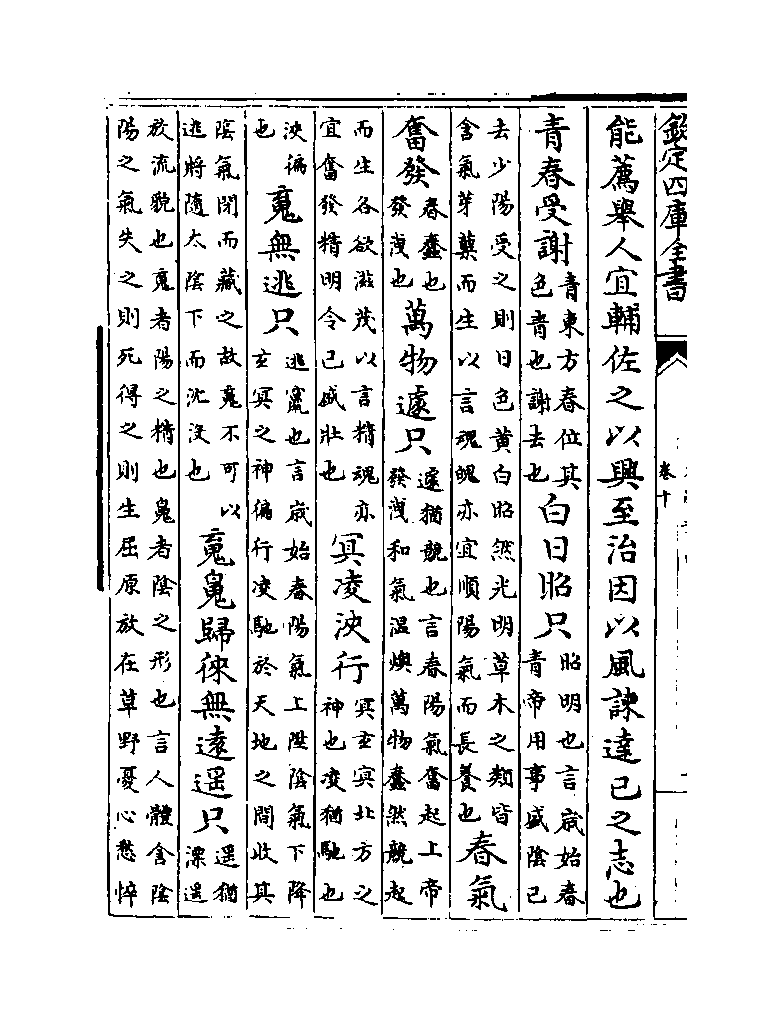 欽定四庫全書
卷十
能薦舉人宜輔佐之以興至治因以風諫達己之志也
青春受謝青東方春位其色青也謝去也白日昭只昭明也言歳始春青帝用事盛陰已
去少陽受之則日色黄白昭然光明草木之類皆含氣芽蘖而生以言魂魄亦宜順陽氣而長養也春氣
奮發春蠢也發洩也萬物遽只遽猶競也言春陽氣奮起上帝發洩和氣温燠萬物蠢然競起
而生各欲滋茂以言精魂亦宜奮發精明令己盛壯也冥凌浹行冥玄冥北方之神也凌猶馳也
浹徧也䰟無逃只逃竄也言歳始春陽氣上陞陰氣下降玄冥之神徧行凌馳於天地之間收其
陰氣閉而藏之故䰟不可以逃將隨太陰下而沈没也䰟魄歸徠無逺遥只遥猶漂遥
放流貌也䰟者陽之精也魄者陰之形也言人體含陰陽之氣失之則死得之則生屈原放在草野憂心愁悴